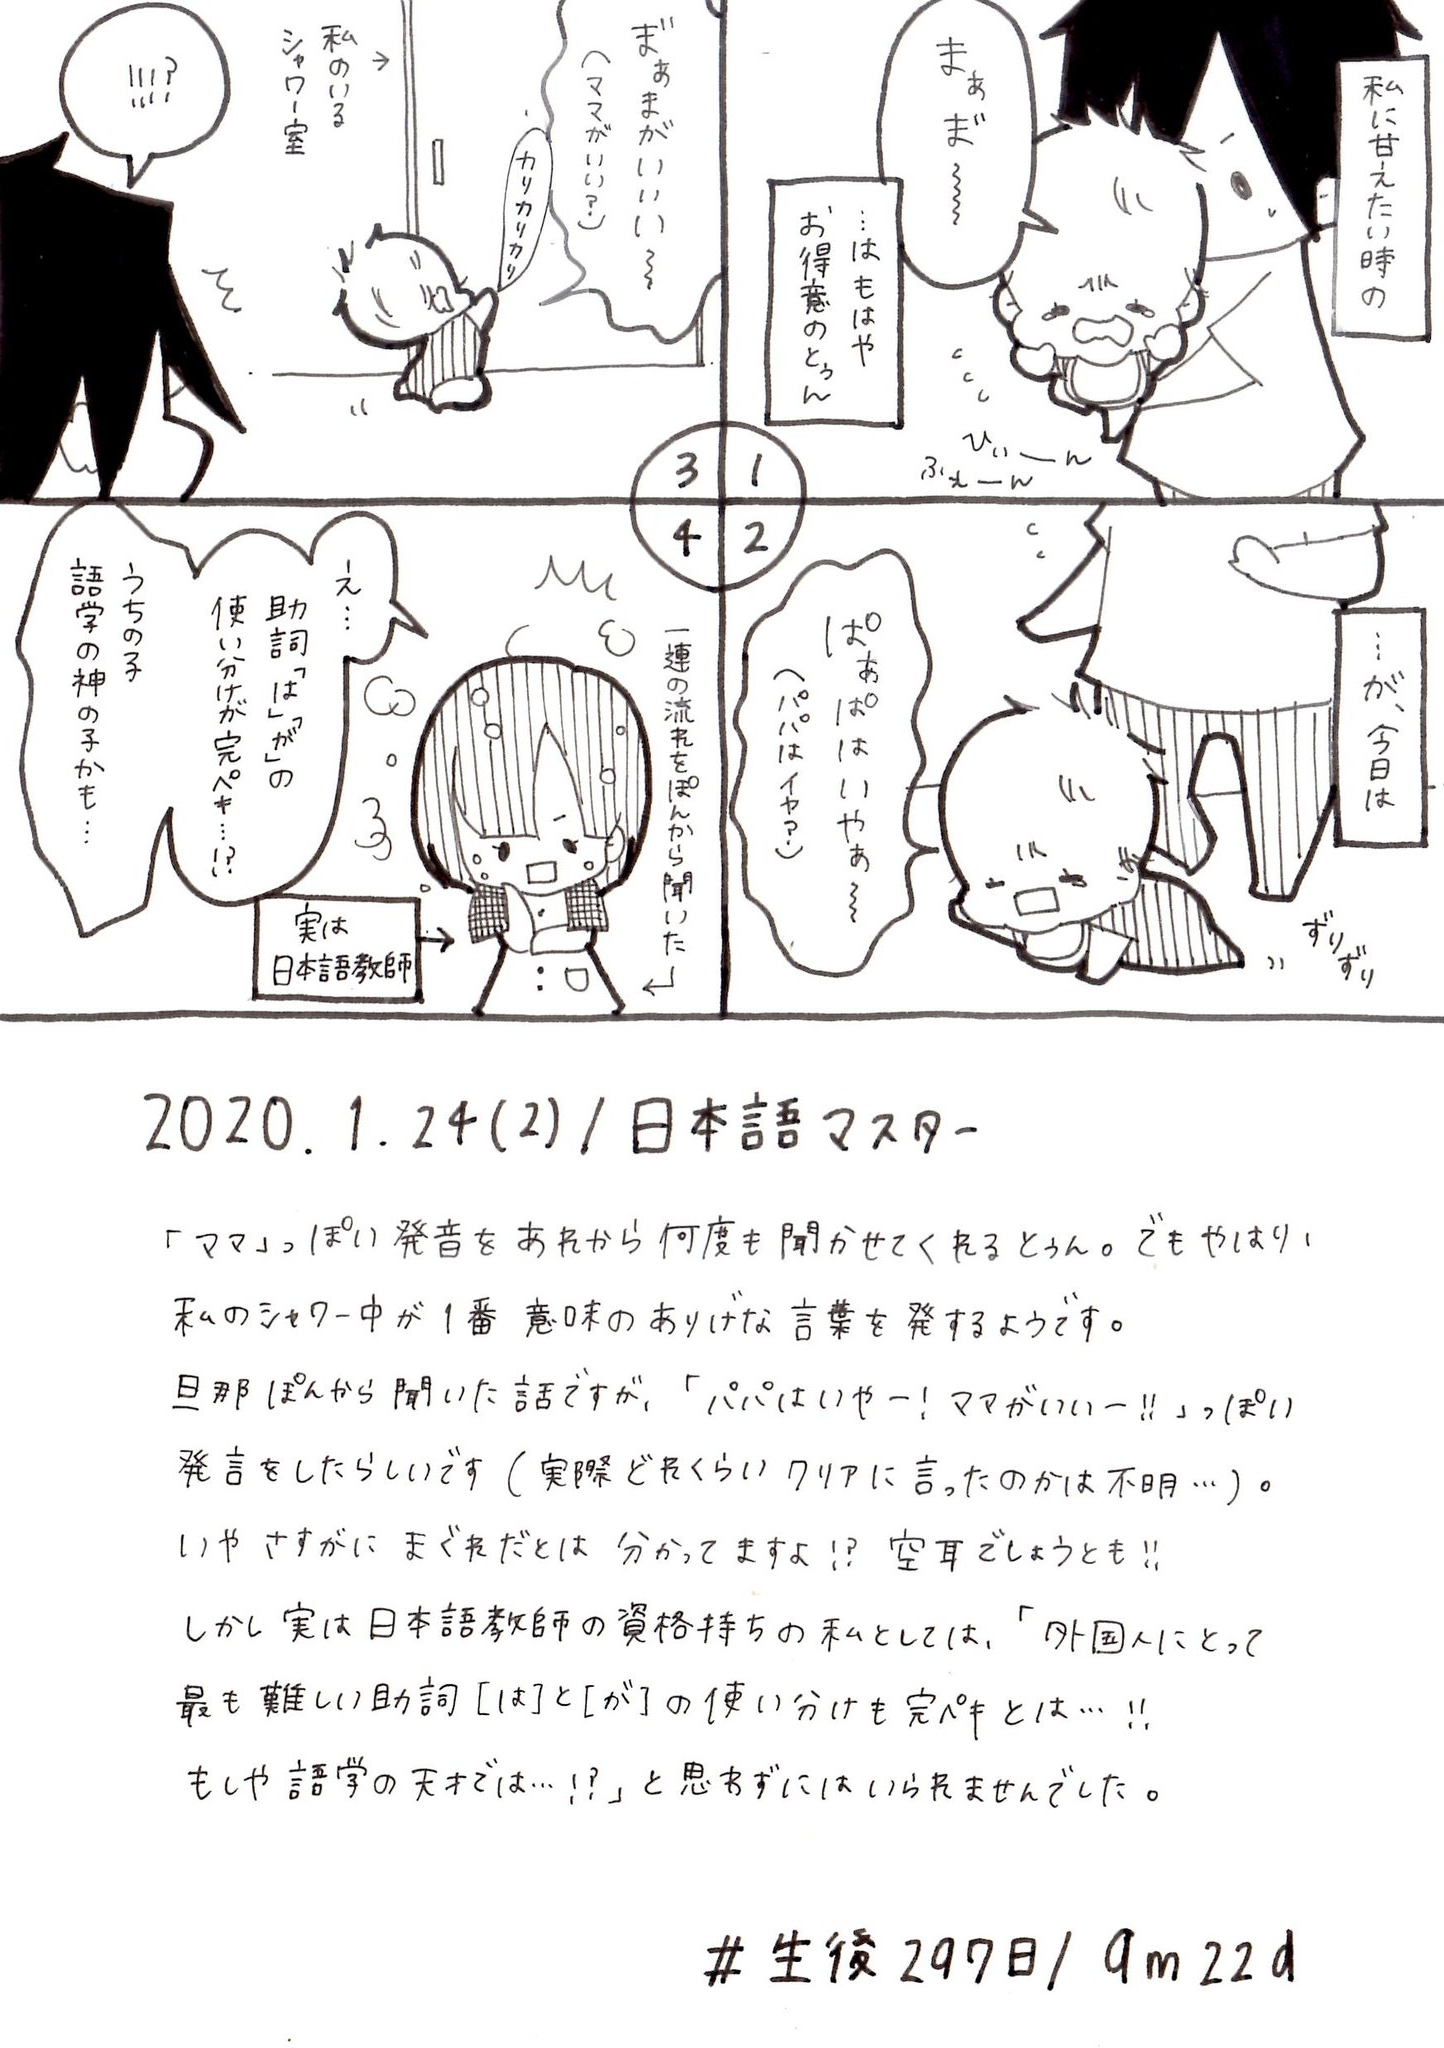 私に甘えたい時の
まぁま゛〜〜
…はもはや
お得意のとぅん
びぃーん
ふぇーん
1
2
3
4
…が、今日は
ぱぁぱはいやぁ〜〜
(パパはイヤ?)
ずりずり
ま゛ぁまがいいい〜〜
(ママがいい?)
カリカリカリ
私のいる
シャワー室
→
!!!!?
一連の流れをぽんから聞いた
え…
助詞「は」「が」の
使い分けが完ペキ…!?
うちの子
語学の神の子かも…
実は
日本語教師
2020.1.24(2)/日本語マスター
「ママ」っぽい発音をあれから何度も聞かせてくれるとぅん。でもやはり、
私のシャワー中が1番意味のありげな言葉を発するようです。
旦那ぽんから聞いた話ですが、「パパはいやー!ママがいいー!!」っぽい
発言をしたらしいです(実際どれくらいクリアに言ったのかは不明…)。
いやさすがにまぐれだとは分かってますよ!?空耳でしょうとも!!
しかし実は日本語教師の資格持ちの私としては、「外国人にとって
最も難しい助詞[は]と[が]の使い分けも完ペキとは…!!
もしや語学の天才では…!?」と思わずにはいられませんでした。
#生後297日/9m22d